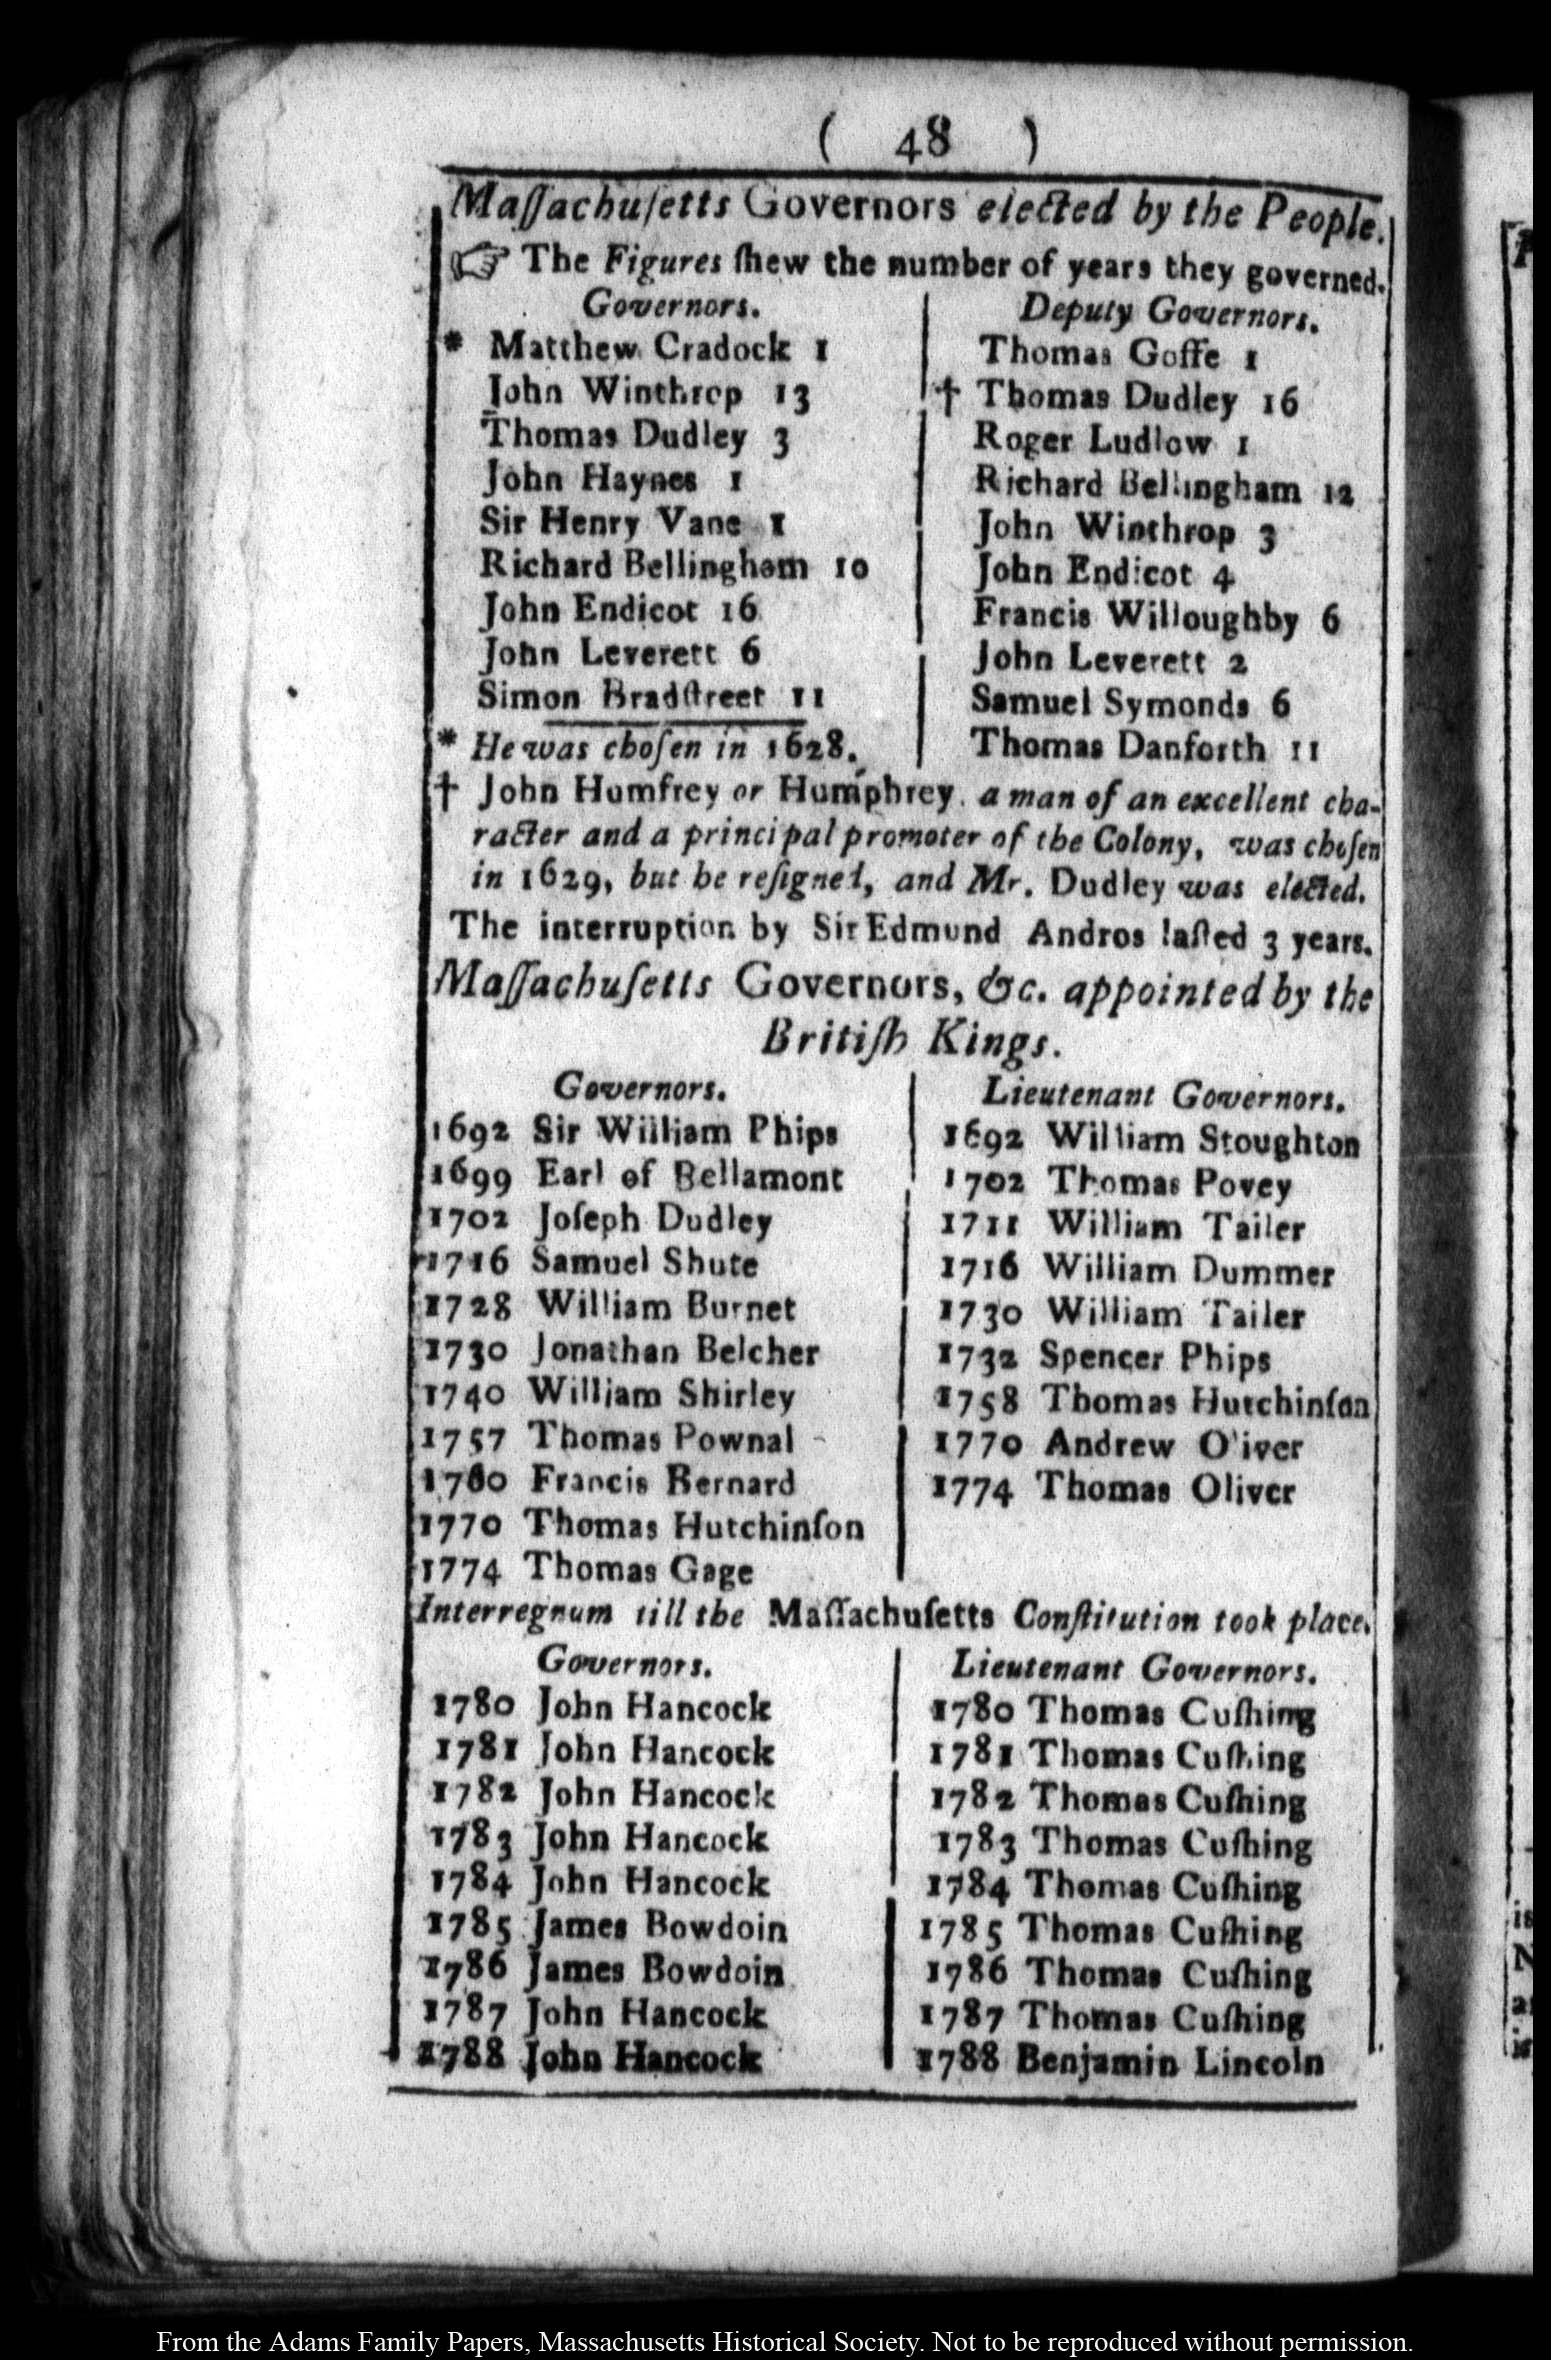 ( 48 )
Maſſachuſetts Governors elected by the People.
☞ The Figures ſhew the number of years they governed.
Governors.
* Matthew Cradock 1
John Winthrop 13
Thomas Dudley 3
John Haynes 1
Sir Henry Vane 1
Richard Bellingham 10
John Endicot 16
John Leverett 6
Simon Bradſtreet 11
* He was choſen in 1628.
Deputy Governors.
Thomas Goffe 1
† Thomas Dudley 16
Roger Ludlow 1
Richard Bellingham 12
John Winthrop 3
John Endicot 4
Francis Willoughby 6
John Leverett 2
Samuel Symonds 6
Thomas Danforth 11
† John Humfrey or Humphrey, a man of an excellent cha-
racter and a principal promoter of the Colony, was choſen
in 1629, but he reſigned, and Mr. Dudley was elected.
The interruption by Sir Edmund Andros laſted 3 years.
Maſſachuſetts Governors, &c. appointed by the
Britiſh Kings.
Governors.
1692 Sir William Phips
1699 Earl of Bellamont
1702 Joſeph Dudley
1716 Samuel Shute
1728 William Burnet
1730 Jonathan Belcher
1740 William Shirley
1757 Thomas Pownal
1760 Francis Bernard
1770 Thomas Hutchinſon
1774 Thomas Gage
Lieutenant Governors.
1692 William Stoughton
1702 Thomas Povey
1711 William Tailer
1716 William Dummer
1730 William Tailer
1732 Spencer Phips
1758 Thomas Hutchinſon
1770 Andrew Oliver
1774 Thomas Oliver
Interregnum till the Maſſachuſetts Conſtitution took place.
Governors.
1780 John Hancock
1781 John Hancock
1782 John Hancock
1783 John Hancock
1784 John Hancock
1785 James Bowdoin
1786 James Bowdoin
1787 John Hancock
1788 John Hancock
Lieutenant Governors.
1780 Thomas Cuſhing
1781 Thomas Cuſhing
1782 Thomas Cuſhing
1783 Thomas Cuſhing
1784 Thomas Cuſhing
1785 Thomas Cuſhing
1786 Thomas Cuſhing
1787 Thomas Cuſhing
1788 Benjamin Lincoln
From the Adams Family Papers, Massachusetts Historical Society. Not to be reproduced without permission.